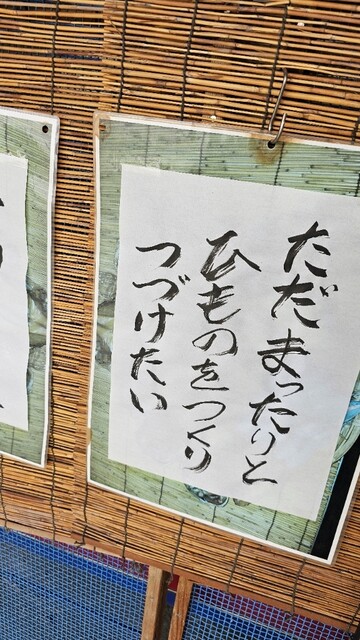 ただまったりと
ひものをつくり
つづけたい